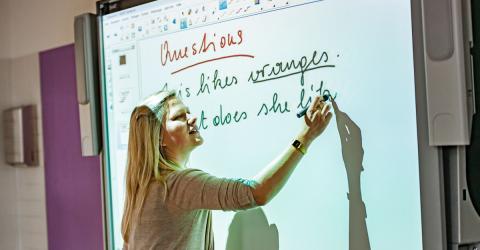 Questions
is likes oranges.
does she